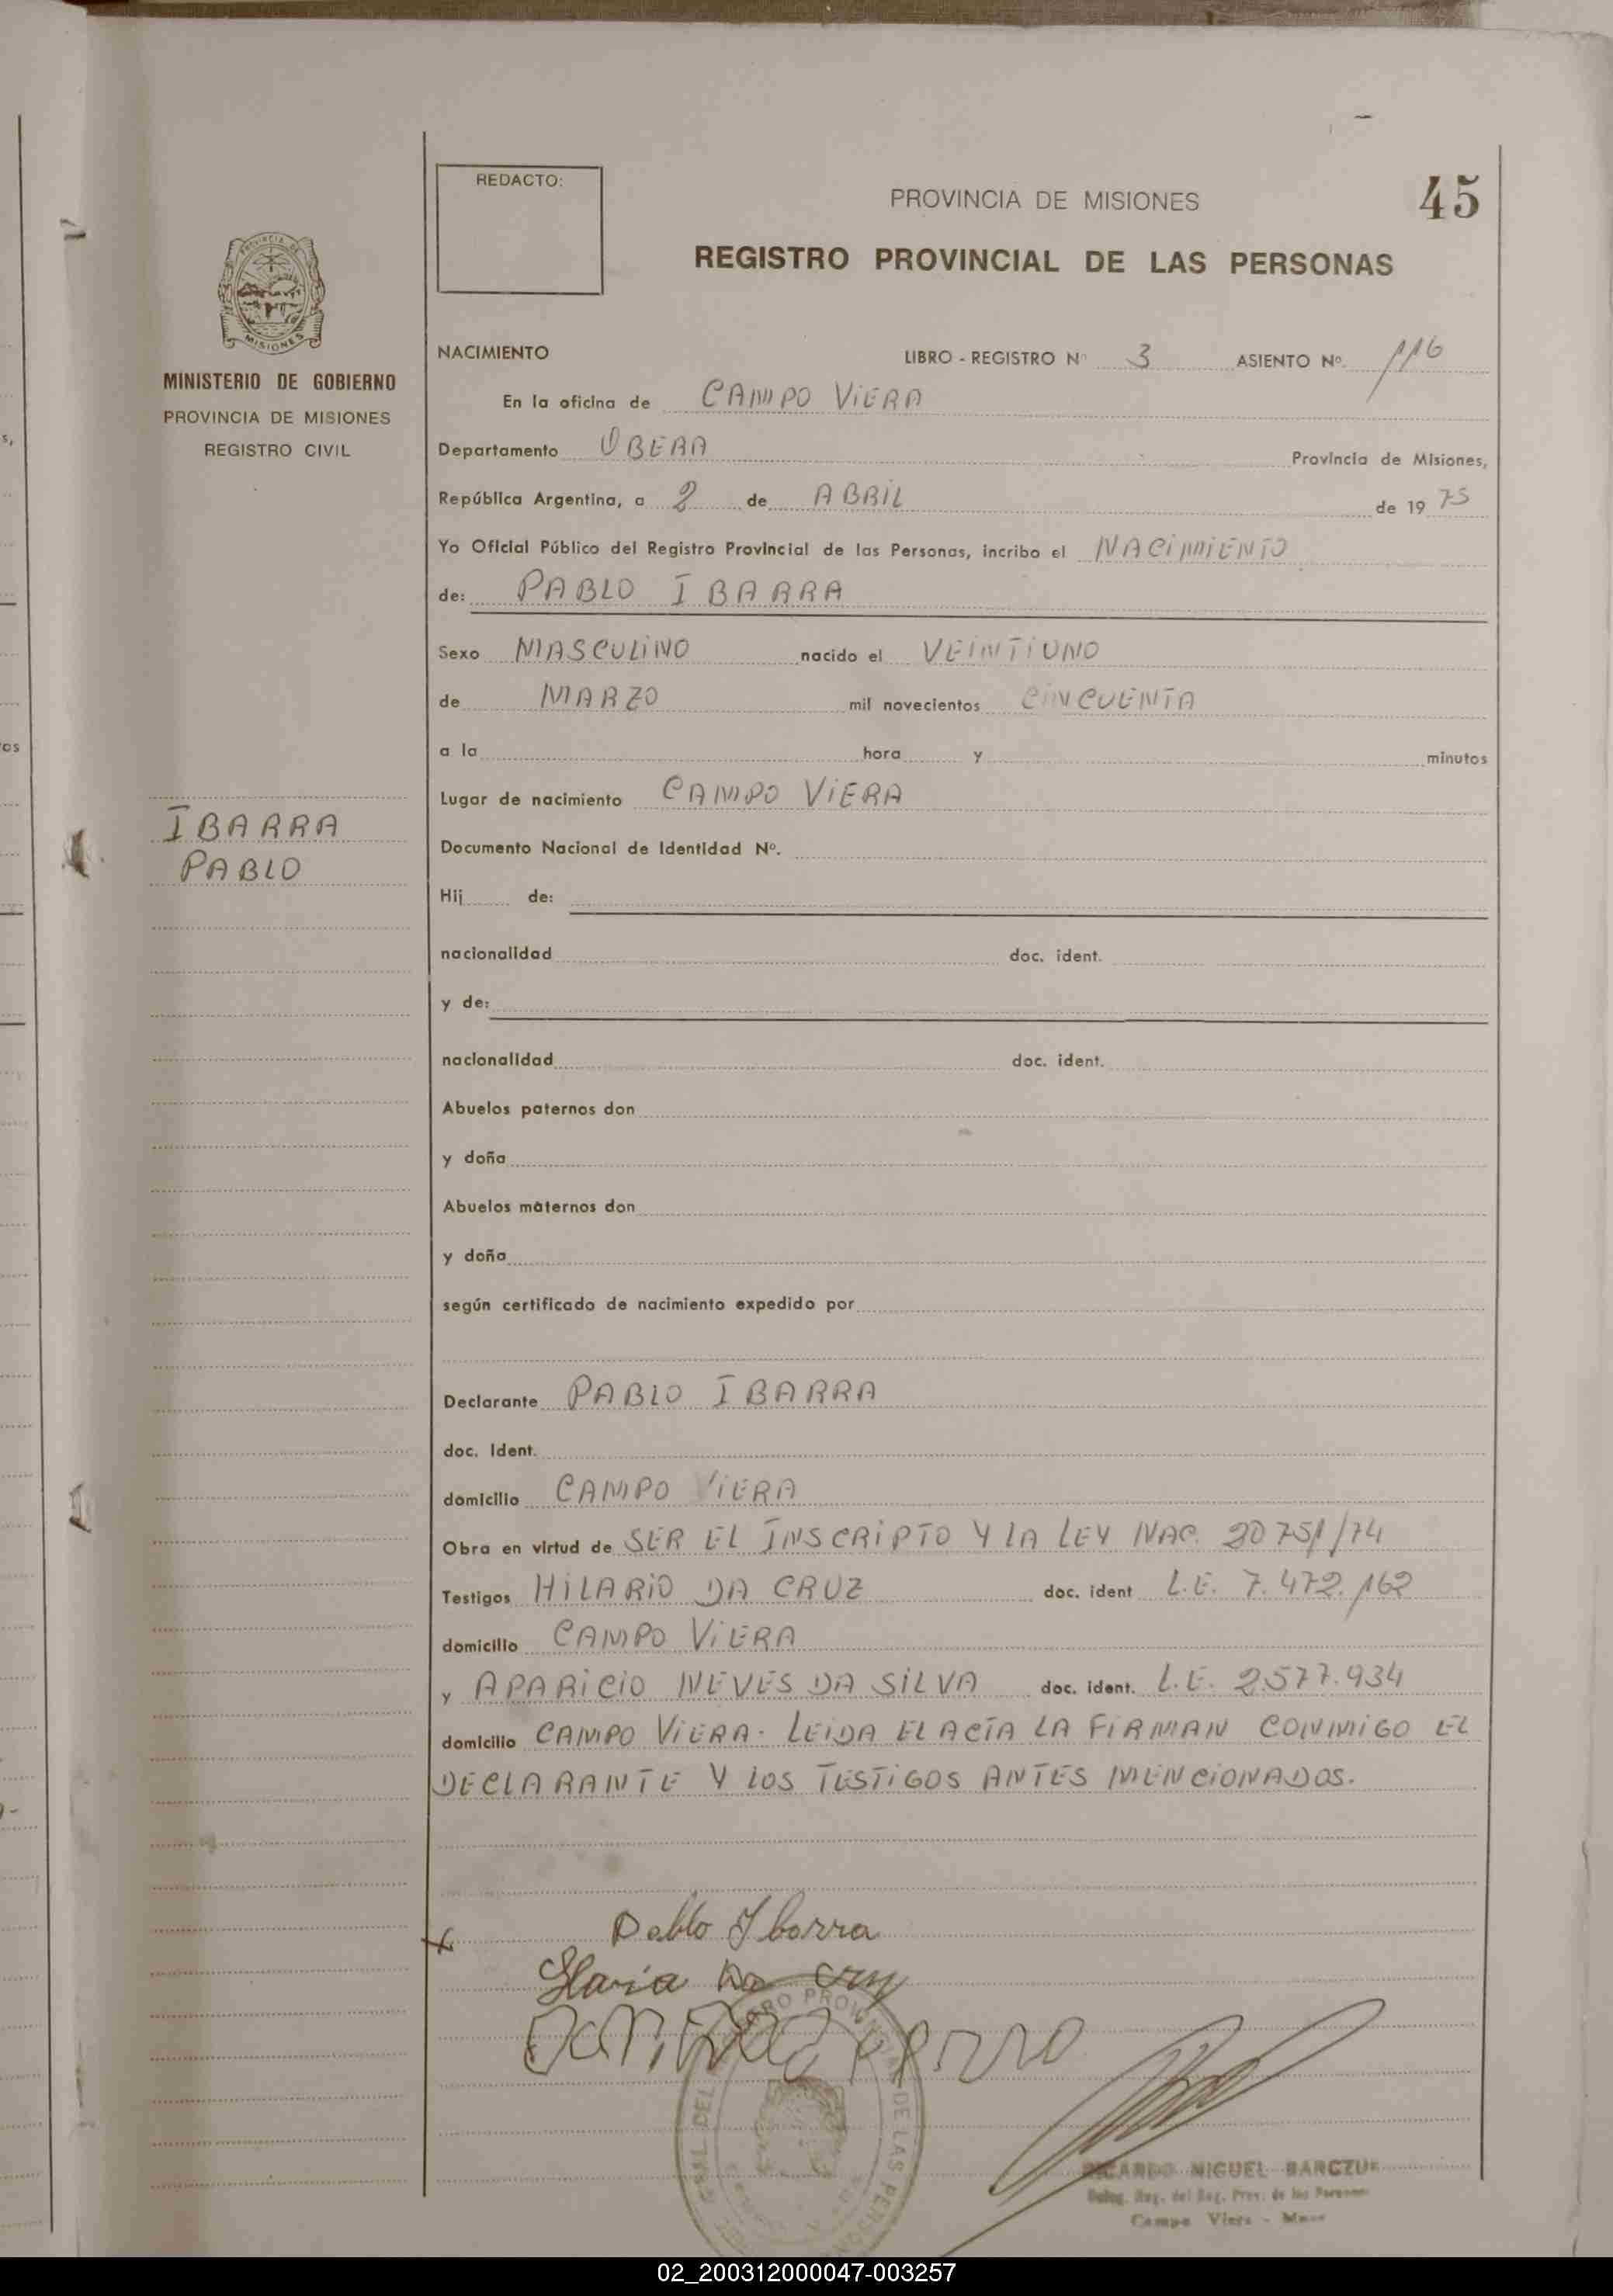 REDACTO:
PROVINCIA DE MISIONES
45
REGISTRO PROVINCIAL DE LAS PERSONAS
PROVINCIA DE
MISIONES
MINISTERIO DE GOBIERNO
PROVINCIA DE MISIONES
REGISTRO CIVIL
NACIMIENTO LIBRO - REGISTRO Nº 3 ASIENTO Nº. 116
En la oficina de CAMPO VIERA
Departamento OBERA Provincia de Misiones,
República Argentina, a 2 de ABRIL de 19 75
Yo Oficial Público del Registro Provincial de las Personas, incribo el NACIMIENTO
de: PABLO IBARRA
Sexo MASCULINO nacido el VEINTIUNO
de MARZO mil novecientos CINCUENTA
a la hora y minutos
Lugar de nacimiento CAMPO VIERA
IBARRA
PABLO
Documento Nacional de Identidad Nº.
Hij de:
nacionalidad doc. ident.
y de:
nacionalidad doc. ident.
Abuelos paternos don
y doña
Abuelos maternos don
y doña
según certificado de nacimiento expedido por
Declarante PABLO IBARRA
doc. Ident.
domicilio CAMPO VIERA
Obra en virtud de SER EL INSCRIPTO Y LA LEY NAC. 20751/74
Testigos HILARIO DA CRUZ doc. ident L.E. 7.472.162
domicilio CAMPO VIERA
y APARICIO NEVES DA SILVA doc. ident. L.E. 2.577.934
domicilio CAMPO VIERA- LEIDA EL ACTA LA FIRMAN CONMIGO EL
DECLARANTE Y LOS TESTIGOS ANTES MENCIONADOS.
Pablo Ibarra
RICARDO MIGUEL BARCZUK
Deleg. Reg. del Reg. Prov. de las Personas
Campo Viera - Mnes
02_200312000047-003257